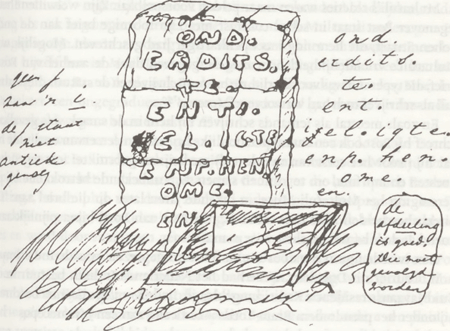 OND.
ERDITS.
TE.
ENT.
EL.IGTE
ENP.HEN
OME.
EN
ond.
erdits.
te.
ent.
enp. hen.
ome.
en.
geen f.
maar 'n t.
de f staat
niet
antiek
genoeg
de
afdeeling
is goed
die moet
gevolgd
worden